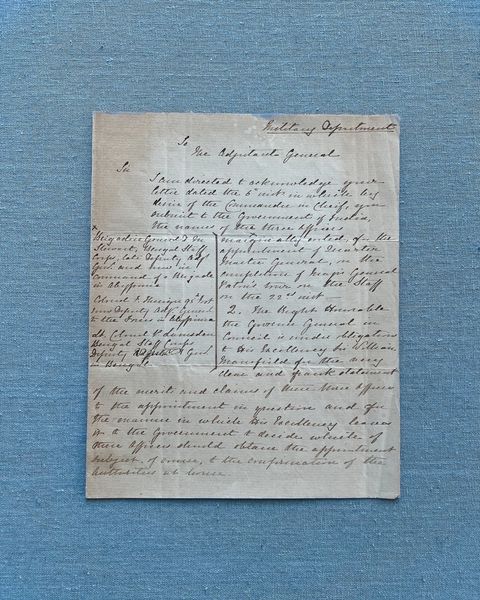 Military Department
To
The Adjutant General
Sir
I am directed to acknowledge your
letter dated the 6th inst. in which by
desire of the Commander in Chief, you
submit to the Government of India,
the names of the three officers
marginally noted, for the
appointment of
Master General, on the
completion of Major General
tour on the Staff
on the 22nd inst.
x
Brigadier General D. M.
Stewart, Bengal Staff
Corps, late Deputy Adjt
Genl and now in
command of a Brigade
in Abyssinia
Colonel F. Thesiger 95th Foot
now Deputy Adjt General
to the Force in Abyssinia
Lt. Colonel P. Lumsden
Bengal Staff Corps
Deputy Genl
in Bengal
2. The Right Honorable
the Governor General in
Council is under obligation
to His Excellency Sir William
Mansfield for the very
clear and frank statement
of the merits and claims of these three officers
to the appointment in question and for
the manner in which His Excellency leaves
it to the Government to decide which of
these officers should obtain the appointment
subject of course, to the confirmation of the
authorities at home.